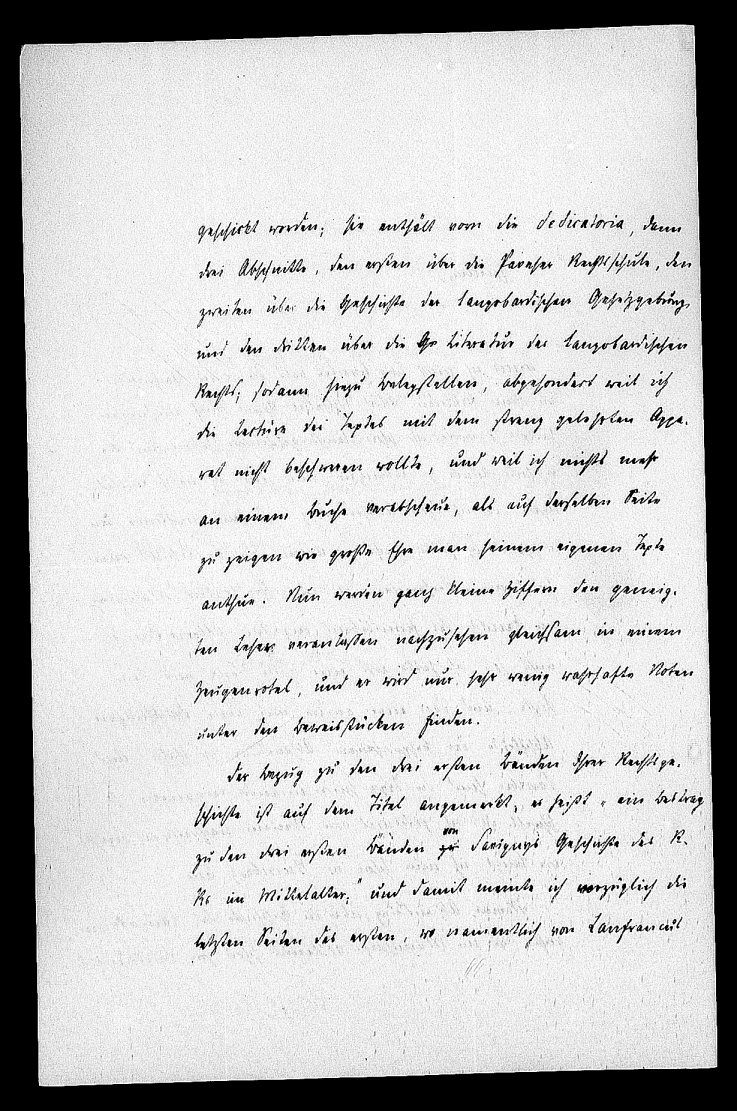 geschickt worden; sie enthält vorn die dedicatoria, dann
drei Abschnitte, den ersten über die Paveser Rechtsschule, den
zweiten über die Geschichte der langobardischen Gesetzgebung,
und den dritten über die Ge Literatur des langobardischen
Rechts; sodann hiezu Belegstellen, abgesondert weil ich
die Lectüre des Textes mit dem streng gelehrten Appa-
rat nicht beschweren wollte, und weil ich nichts mehr
an einem Buche verabscheue, als auf derselben Seite
zu zeigen wie große Ehre man seinem eigenen Texte
anthue. Nun werden ganz kleine Ziffern den geneig-
ten Leser veranlassen nachzusehen gleichsam in einem
Zeugenrotel, und er wird nur sehr wenig wahrhafte Noten
unter den Beweisstücken finden.
Der Bezug zu den drei ersten Bänden Ihrer Rechtsge-
schichte ist auf dem Titel angemerkt, es heißt „ein Beitrag
zu den drei ersten Bänden von Savignys Geschichte des R.
Rs im Mittelalter," und damit meinte ich vorzüglich die
letzten Seiten des ersten, wo namentlich von Lanfrancus